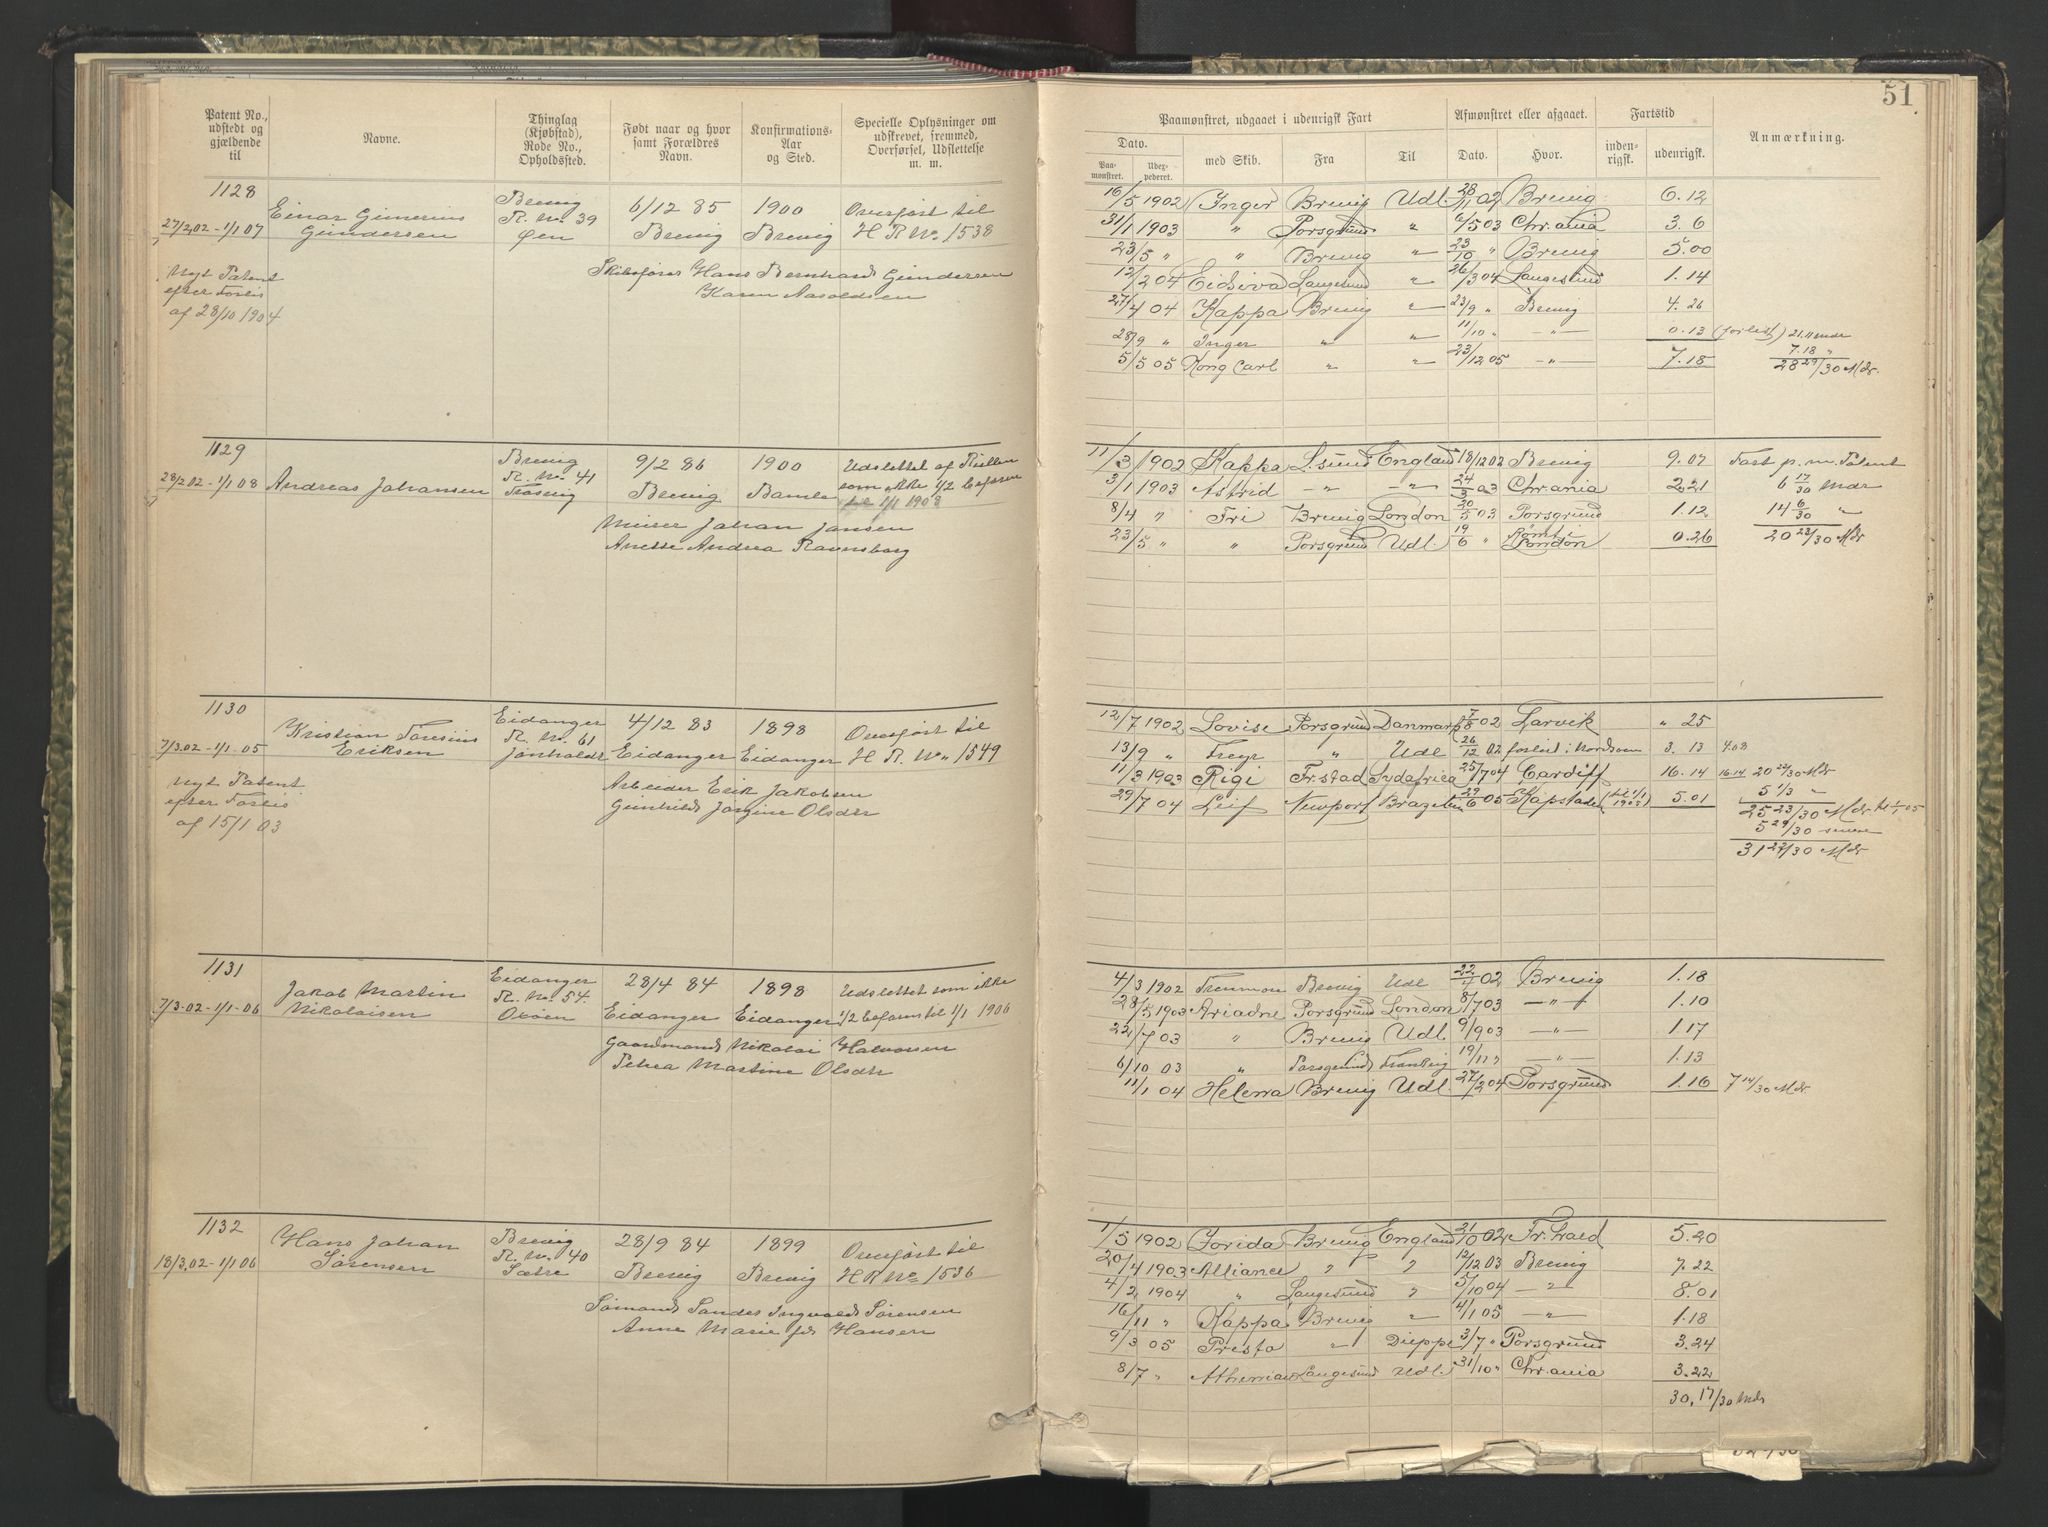 51
Patent No., udstedt og gjældende til
Navne.
Thinglag (Kjøbstad), Rode No., Opholdssted.
Født naar og hvor samt Forældres Navn.
Konfirmations-Aar og Sted.
Specielle Oplysninger om udskrevet, fremmed, Overførsel, Udslettelse m. m.
Paamønstret, udgaaet i udenrigsk Fart
Afmønstret eller afgaaet.
Fartstid
Anmærkning.
Dato.
med Skib.
Fra
Til
Dato.
Hvor.
inden-rigsk.
udenrigsk.
Paa-mønstret.
Udex-pederet.
1128
27/2 02 - 1/1 07
Einar Gunerius
Gundersen
Brevig
R. No. 39
Øen
6/12 85
Brevig
1900
Brevig
Overført til
H R No. 1538
Skibsfører Hans Bernhard Gundersen
Karen Aasoldsen
Nyt Patent
efter Forlis
af 28/10 1904
16/5 1902 Inger Brevig Udl. 28/11 02 Brevig 6.12
31/1 1903 " Porsgrund " 6/5 03 Chr.ania 3.6
23/5 " " Brevig " 23/10 " Brevig 5.00
12/2 04 Eidsiva Langesund " 26/3 04 Langesund 1.14
27/4 04 Kappa Brevig " 23/9 " Brevig 4.26
28/9 " Inger " " 11/10 " -"- 0.13 (forlist) 21.11 mdr
5/5 05 Kong Carl " " 23/12 05 -"- 7.18
7.18 "
28 29/30 Mdr.
1129
28/2 02 - 1/1 08
Andreas Johansen
Brevig
R. No. 41
Trosvig
9/2 86
Brevig
1900
Bamle
Udslettet af Rullen
som ikke 1/2 befaren
til 1/1 1908
Murer Johan Jansen
Anette Andrea Ravnsborg
11/3 1902 Kappa L.sund England 18/12 02 Brevig 9.07 Fart p. m. Patent
3/1 1903 Astrid -"- -"- 24/3 03 Chr.ania 2.21 6 17/30 Mdr
8/4 " Fri Brevig London 20/5 03 Porsgrund 1.12 14 6/30 "
23/5 " " Porsgrund Udl. 19/6 " Rømt i London 0.26 20 23/30 Mdr
1130
7/3 02 - 1/1 - 05
Kristian Toresius
Eriksen
Eidanger
R. No. 61
Jønholdt
4/12 83
Eidanger
1898
Eidanger
Overført til
H R No. 1549
Arbeider Erik Jakobsen
Gunhild Jørgine Olsdtr
Nyt Patent
efter Forlis
af 15/1 03
12/7 1902 Lovise Porsgrund Danmark 7/8 02 Larvik " 25
13/9 " Freyr " Udl 26/12 02 forlist i Nordsøen 3.13 4.08
11/3 1903 Rigi Fr.stad Sydafrica 25/7 04 Cardiff 16.14 16.14 20 22/30 Mdr
29/7 04 Leif Newport Brazilien 29/6 05 Kapstaden (til 1/1 1905) 5.01 5 1/3 "
25 23/30 Mdr til 1/1 05
5 29/30 senere
31 22/30 Mdr
1131
7/3 - 02 - 1/1 - 06
Jakob Martin
Nikolaisen
Eidanger
R. No. 54.
Oxøen
28/4 84
Eidanger
1898
Eidanger
Udslettet som ikke
1/2 befaren til 1/1 1906
Gaardmand Nikolai Halvorsen
Petra Martine Olsdtr
4/3 1902 Brevig Udl 22/4 02 Brevig 1.18
28/5 1903 Ariadne Porsgrund London 8/7 03 -"- 1.10
22/7 03 " Brevig Udl. 9/9 03 -"- 1.17
6/10 03 " Porsgrund Frankrig 19/11 " -"- 1.13
11/1 04 Helena Brevig Udl. 27/2 04 Porsgrund 1.16 7 14/30 Mdr
1132
18/3 02 - 1/1 06
Hans Johan
Sørensen
Brevig
R. No. 40
Sætre
28/9 84
Brevig
1899
Brevig
Overført til
H R No. 1536
Sømand Sander Ingvald Sørensen
Anne Marie f. Hansen
1/5 1902 Brevig England 21/10 02 5.20
20/4 1903 Alliance " " 12/12 03 Brevig 7.22
4/2 1904 " Langesund " 5/10 04 -"- 8.01
16/11 " Kappa Brevig " 4/1 05 -"- 1.18
9/3 05 Presto " Dieppe 3/7 " Porsgrund 3.24
8/7 " Athenian Langesund Udl. 31/10 " Chr.ania 3.22
30.17/30 Mdr